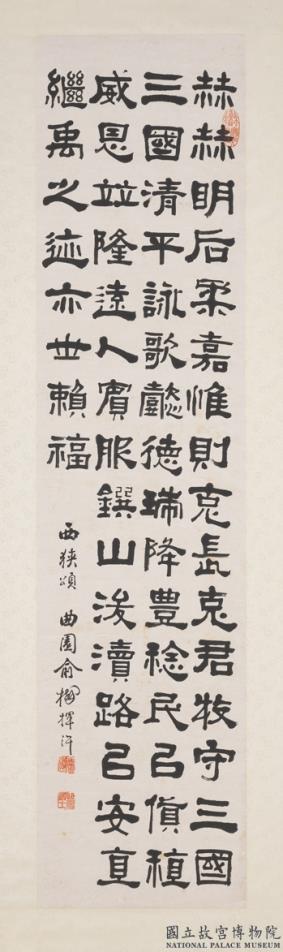 赫赫明后柔嘉惟則克長克君牧守三國
三國清平詠歌懿德瑞降豊稔民㠯貨稙
威恩竝隆遠人賓服鐉山浚瀆路㠯安直
繼禹之迹亦世賴福
西狹頌 曲園俞樾揮汗
國立故宮博物院
NATIONAL PALACE MUSEUM